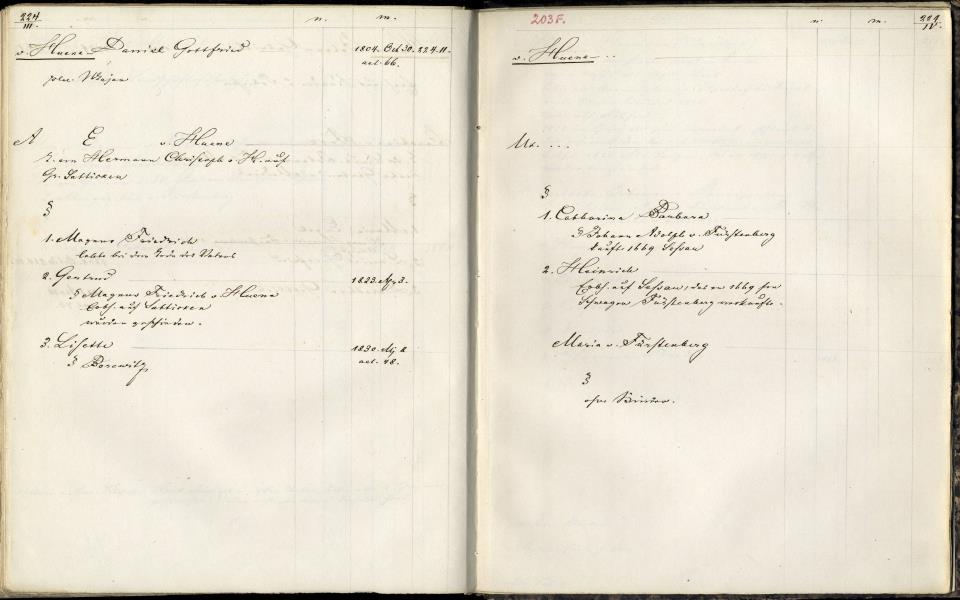 224
III.
n. m.
v. Huene Daniel Gottfried 1804. Oct 30. 224. II.
aet. 66.
poln. Major
A E v. Huene
Hermann Christoph v. H. auf
Gr. Latticken
§
1. Magnus Friedrich
lebte bei dem Tode des Vaters
2. Gertrud 1823. Apr 3.
§ Magnus Friedrich v. Huene
Erbh. auf Latticken
wurden geschieden.
3. Lisette 1830. Mz
aet. 48.
§
203 F.
n. m.
IV.
v. Huene
Ux. ...
§
1. Catharina Barbara
§ Johann Adolph v. Fürstenberg
kauft 1669 Lessau
2. Heinrich
Erbh. auf Lessau, das er 1669 sn
Schwager Fürstenberg verkaufte.
Maria v. Fürstenberg
§
ohne Kinder.